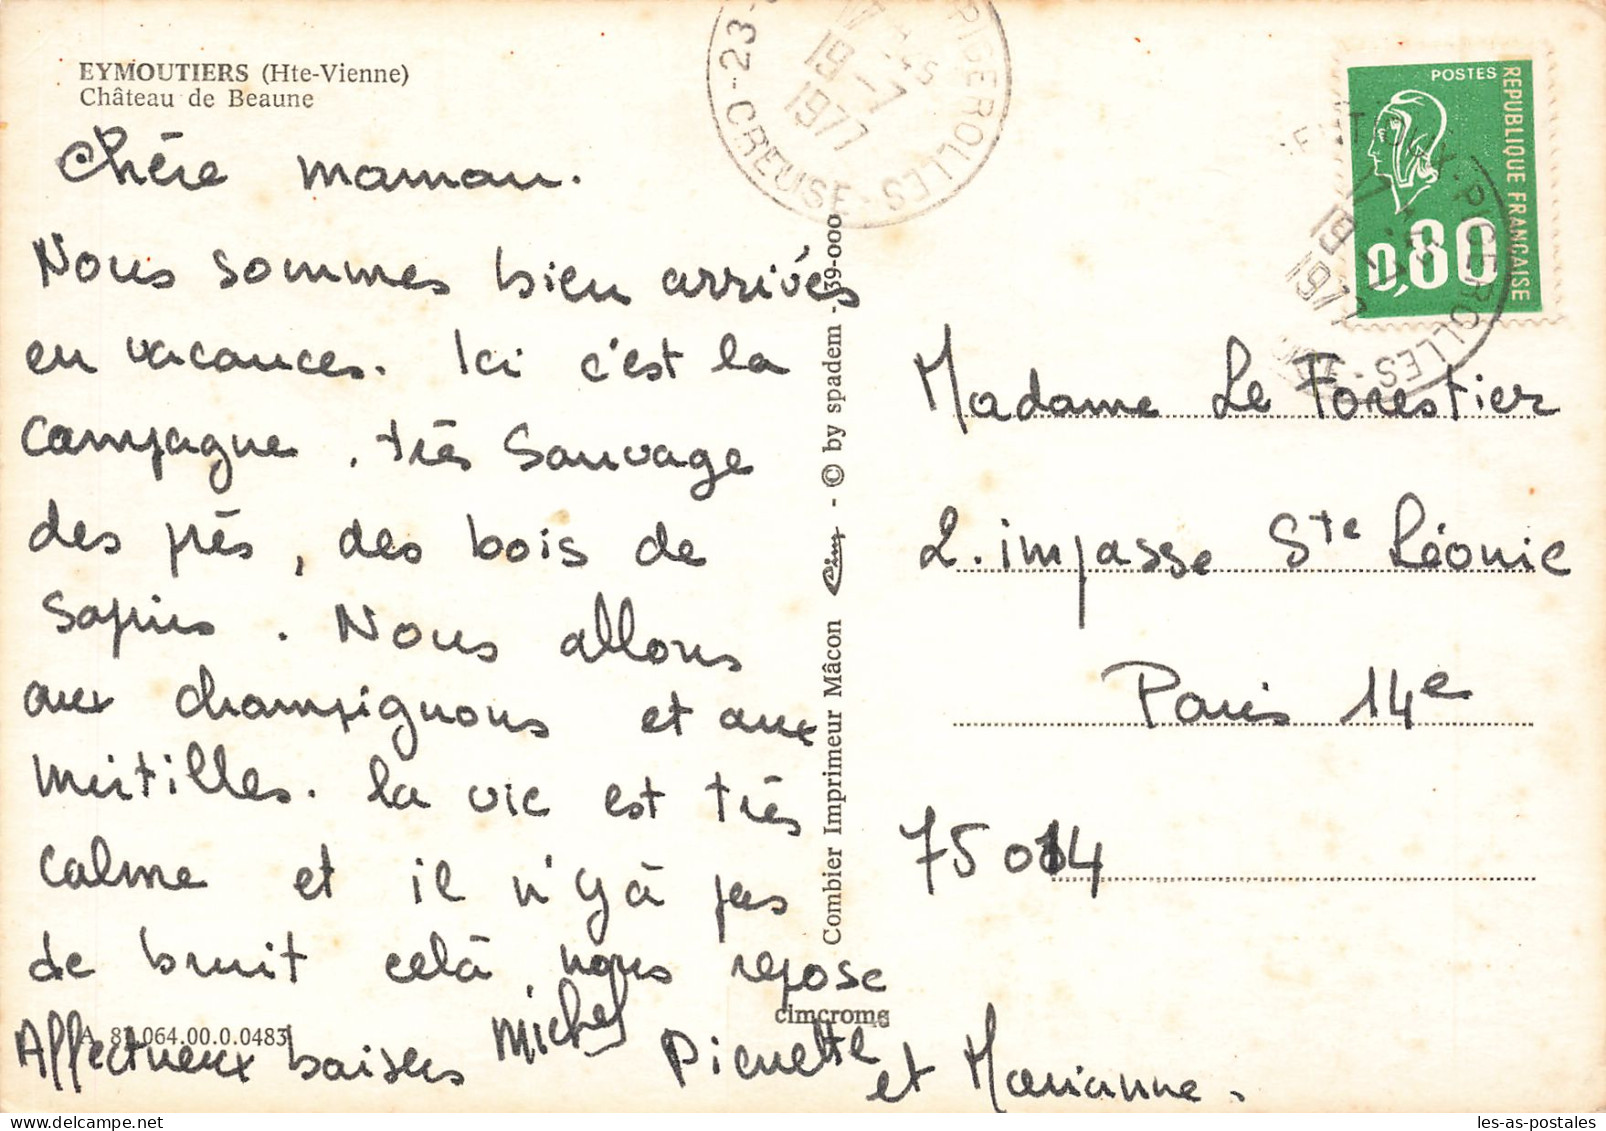 EYMOUTIERS (Hte-Vienne)
Château de Beaune
Chère maman.
Nous sommes bien arrivés
en vacances. Ici c'est la
campagne, très sauvage
des prés, des bois de
sapins. Nous allons
aux champignons et aux
mirtilles. la vie est très
calme et il n'y à pas
de bruit celà nous repose
Affectueux baisers Michel Pierrette et Marianne.
A 87.064.00.0.0483
cimcrome
Combier Imprimeur Mâcon Cim - © by spadem - 39-000
23
PIGEROLLES
CREUSE
17 H 45
19 -7
1977
POSTES
REPUBLIQUE FRANÇAISE
0,80
PIGEROLLES
17
19 -7
1977
Madame Le Forestier
2. impasse Ste Léonie
Paris 14e
75014
les-as-postales